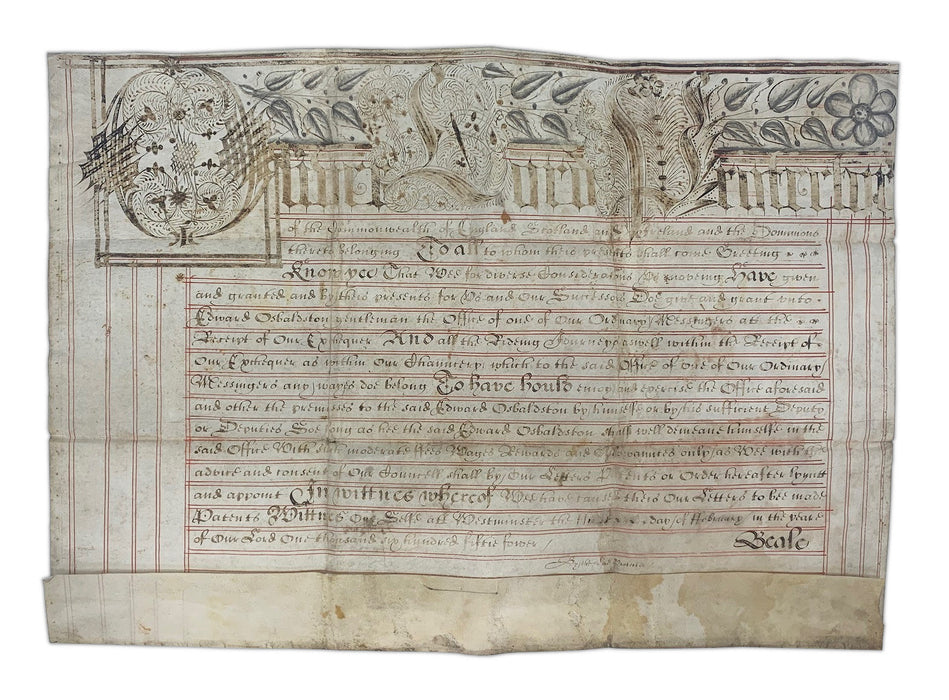 Oliver Lord Protector
of the Commonwealth of England Scotland and Ireland and the Dominions
thereto belonging To all to whom theis presents shall come Greeting
Know yee That Wee for diverse Consideracions Us moveing Have given
and graunted and by theis presents for Us and Our Successors Doe give and grant unto
Edward Osbaldston gentleman the Office of one of Our Ordinary Messingers att the
Receipt of Our Exchequer And all the Rideing Journeys aswell within the Receipt of
Our Exchequer as within Our Chauncery, which to the said Office of one of Our Ordinary
Messingers any wayes doe belong To have hould enioy and exercise the Office aforesaid
and other the premisses to the said Edward Osbaldston by himselfe or by his sufficient Deputy
or Deputies Soe long as hee the said Edward Osbaldston shall well demeane himselfe in the
said Office With such moderate ffees Wages Rewards and Allowances only as Wee with the
advice and consent of Our Councell shall by Our Letters Patents or Order hereafter lymitt
and appoint In wittnes whereof Wee have caused theis Our Letters to bee made
Patents Wittnes Our Selfe att Westminster the day of ffebruary in the yeare
of Our Lord One thousand six hundred fiftie fower /
Beale